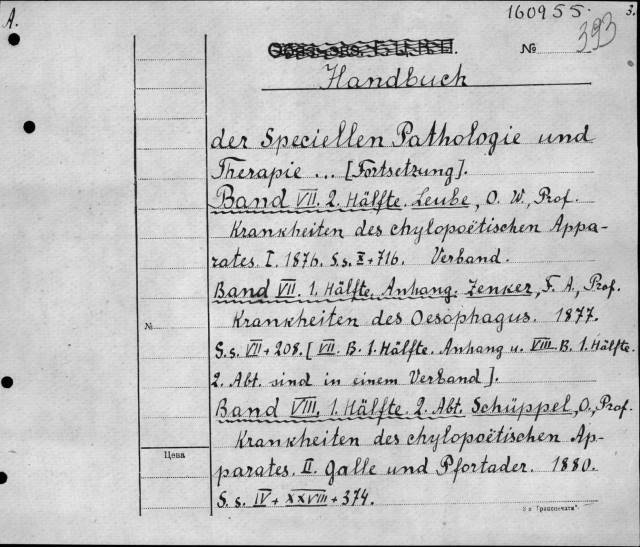 A.
160955.
3.
№ 393
Handbuch
der Speciellen Pathologie und
Therapie ... [Fortsetzung].
Band VII. 2. Hälfte. Leube, O. W., Prof.
Krankheiten des chylopoëtischen Appa-
rates. I. 1876. S.s. X+716. Verband.
Band VII. 1. Hälfte. Anhang. Zenker, F. A., Prof.
Krankheiten des Oesophagus. 1877.
S.s. VII+208. [VII. B. 1. Hälfte. Anhang u. VIII. B. 1. Hälfte.
2. Abt. sind in einem Verband].
Band VIII, 1. Hälfte. 2. Abt. Schüppel, O., Prof.
Krankheiten des chylopoëtischen Ap-
parates. II. Galle und Pfortader. 1880.
S.s. IV+XXVIII+374.
№
Цена